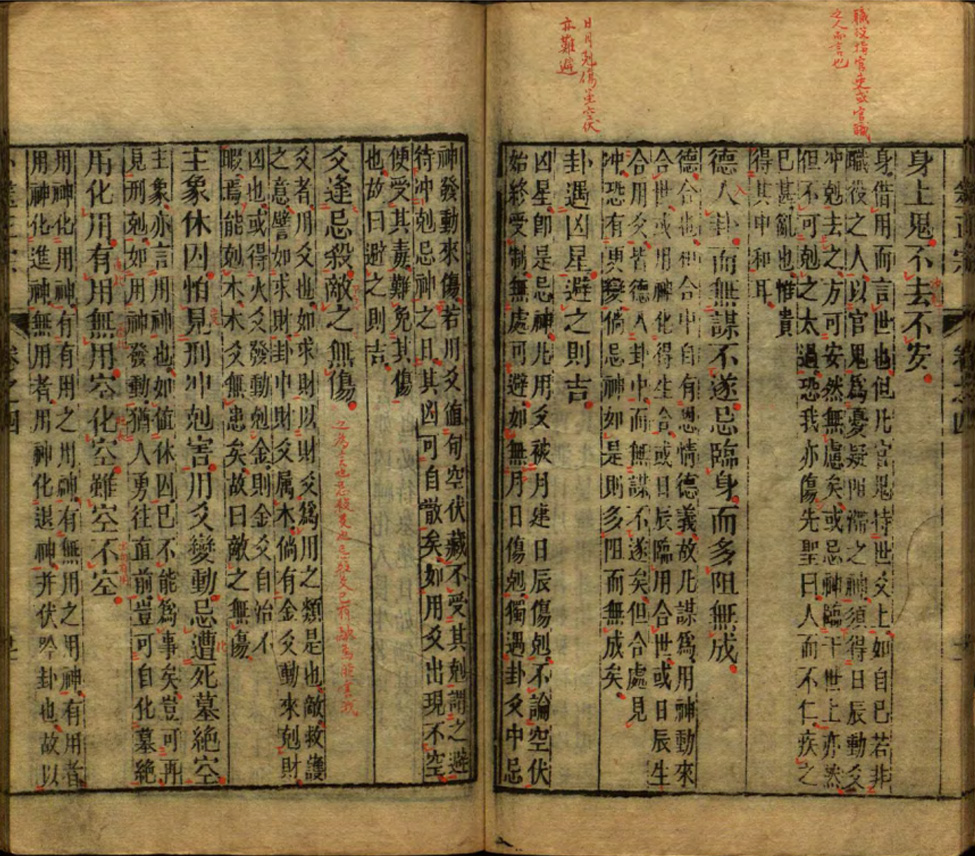 職役指官吏或官職
之人而言也
日月剋傷空伏
亦難避
卷之四
身上鬼不去不安
身借用而言世也但凡官鬼持世爻上如自己若非
職役之人以官鬼爲憂疑阻滯之神須得日辰動爻
冲剋去之方可安然無慮矣或忌神臨于世上亦然
但不可剋之太過恐我亦傷先聖曰人而不仁疾之
已甚亂也惟貴
得其中和耳
德入卦而無謀不遂忌臨身而多阻無成
德合也和合中自有恩情德義故凡謀爲用神動來
合世或用神化得生合或日辰臨用合世或日辰生
合用爻皆德入卦中而無謀不遂矣但合處見
冲恐有更變倘忌神如是則多阻而無成矣
卦遇凶星避之則吉
凶星卽是忌神凡用爻被月建日辰傷剋不論空伏
始終受制無處可避如無月日傷剋獨遇卦爻中忌
神發動來傷若用爻值旬空伏藏不受其剋謂之避
待冲剋忌神之日其凶可自散矣如用爻出現不空
便受其毒難免其傷
也故曰避之則吉
爻逢忌殺敵之無傷
爻者用爻也如求財以財爻爲用之類是也敵救護
之意譬如求財卦中財爻属木倘有金爻動來剋財
凶也或得火爻發動剋金則金爻自治不
暇焉能剋木木爻無患矣故曰敵之無傷
主象休囚怕見刑冲剋害用爻變動忌遭死墓絕空
主象亦言用神也如值休囚已不能爲事矣豈可再
見刑剋如用神發動猶人勇往直前豈可自化墓絕
用化用有用無用空化空雖空不空
用神化用神有有用之用神有無用之用神有用者
用神化進神無用者用神化退神并伏吟卦也故以
卷之四